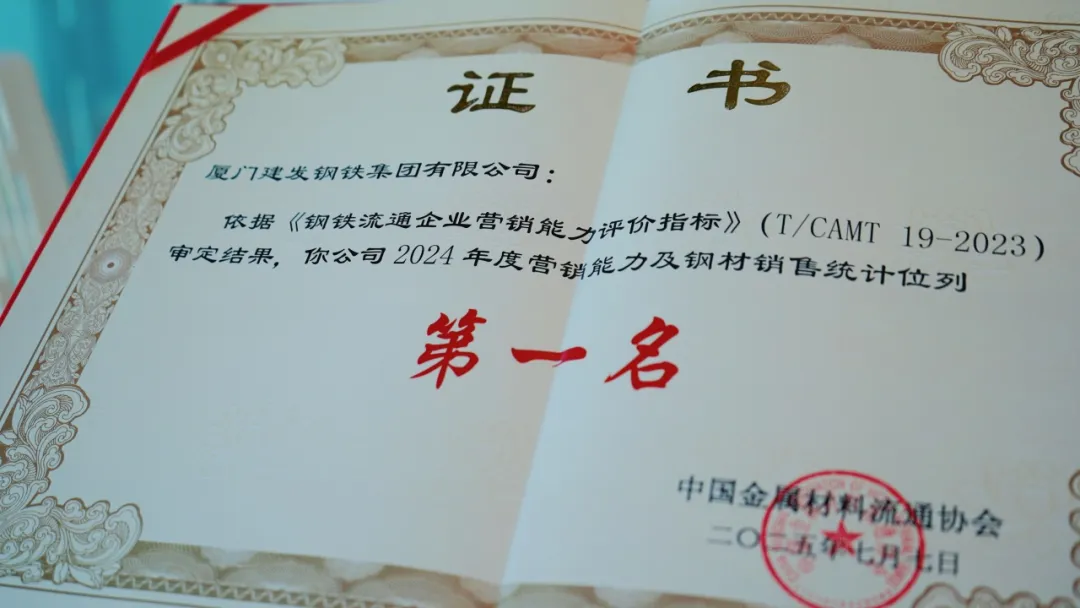 证书
厦门建发钢铁集团有限公司：
依据《钢铁流通企业营销能力评价指标》（T/CAMT 19-2023）
审定结果，你公司2024年度营销能力及钢材销售统计位列
第一名
中国金属材料流通协会
二〇二五年七月七日